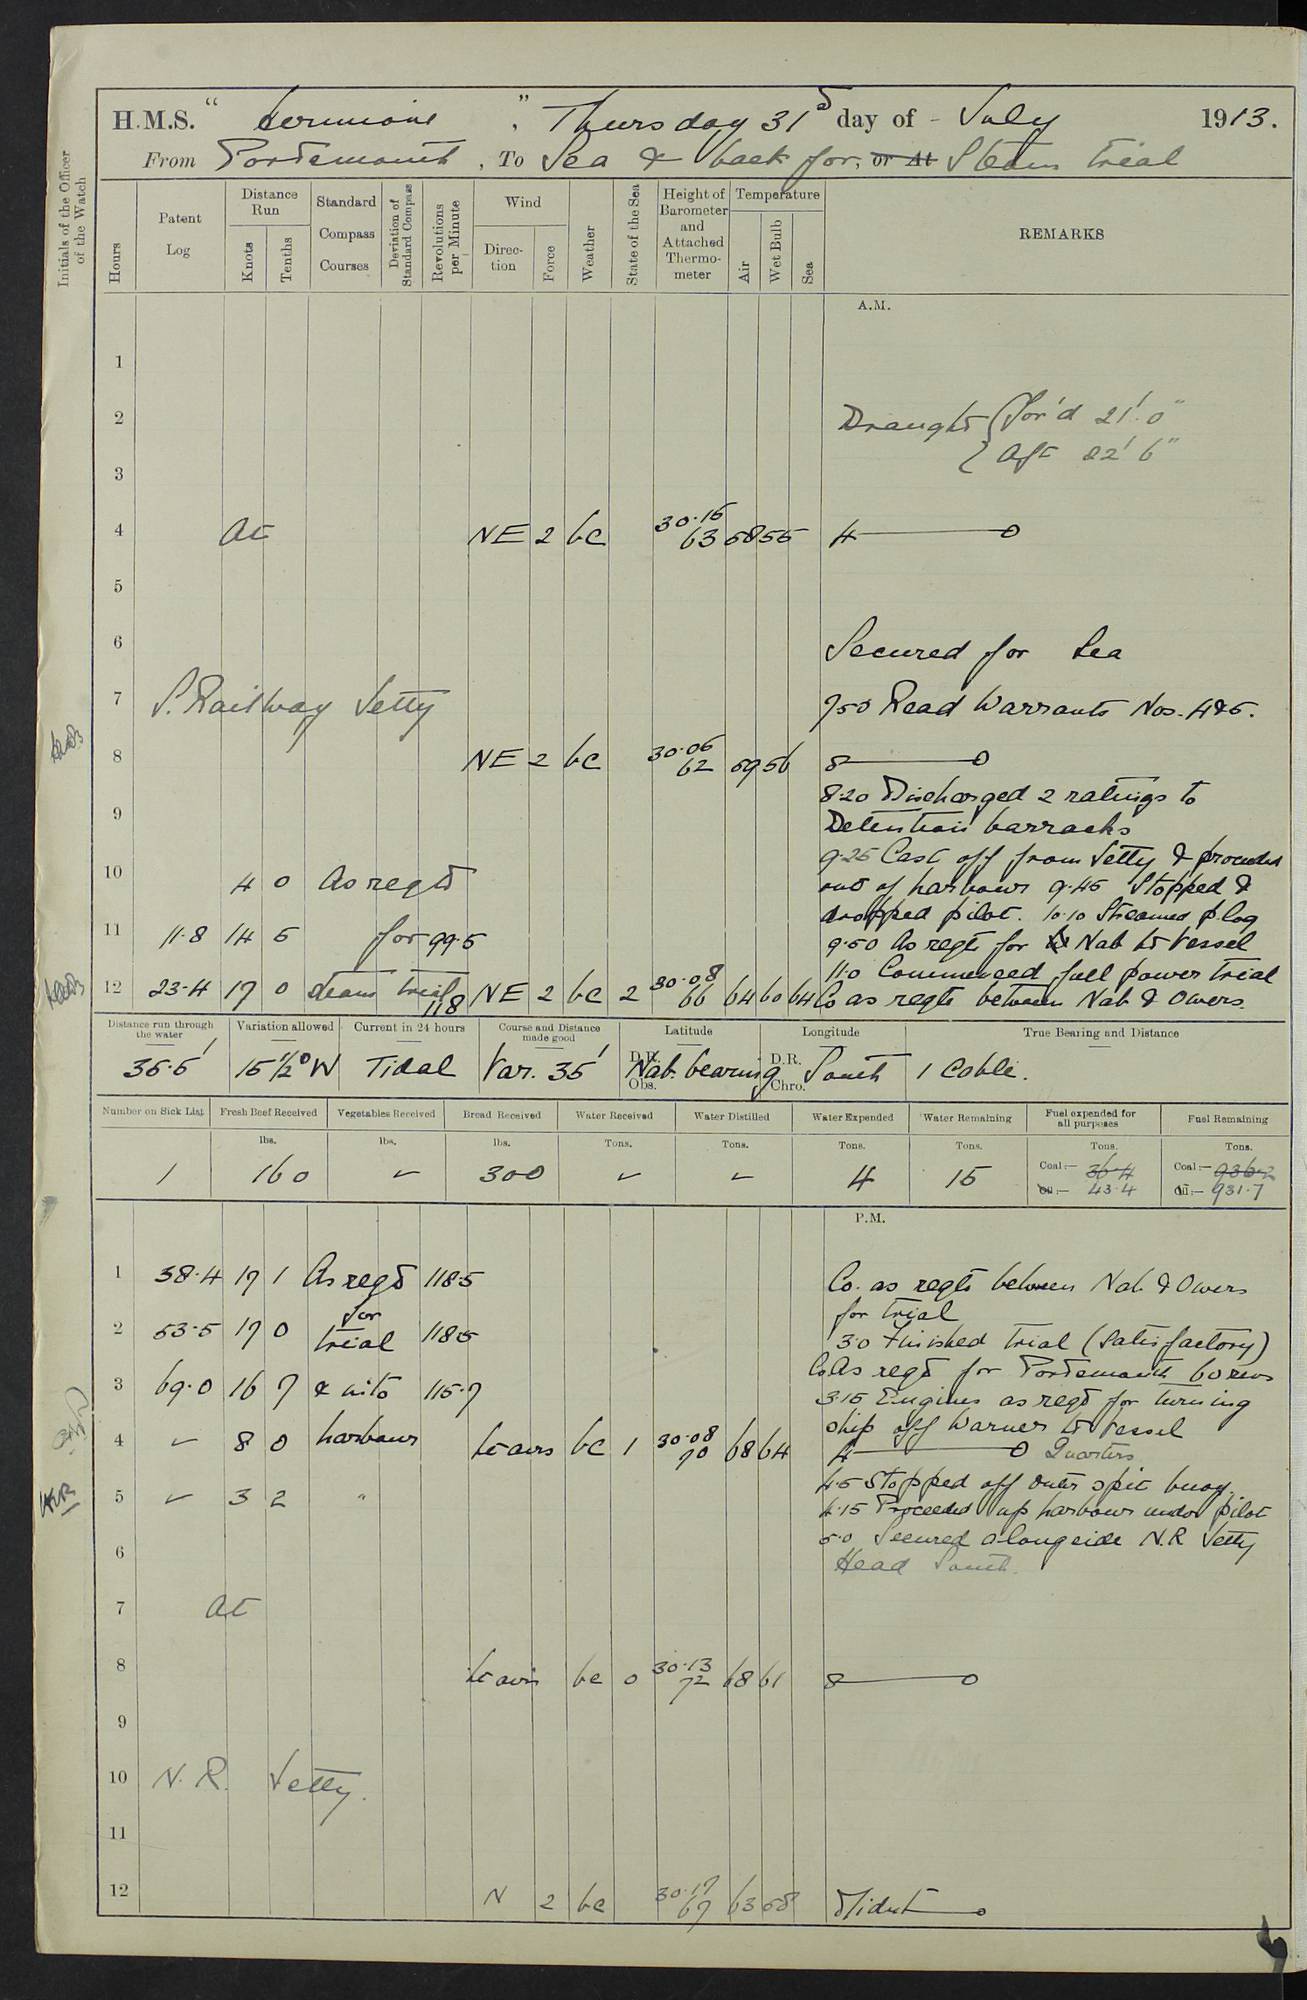 H.M.S. "Hermione", Thursday 31st day of July 1913.
From Portsmouth, To Sea & back for, or At Steam trial
Initials of the Officer of the Watch
Hours
Patent Log
Distance Run
Knots
Tenths
Standard Compass Courses
Deviation of Standard Compass
Revolutions per Minute
Wind
Direction
Force
Weather
State of the Sea
Height of Barometer and Attached Thermometer
Temperature
Air
Wet Bulb
Sea
REMARKS
A.M.
1
2 Draught { for'd 21' 0"
{ Aft 22' 6"
3
4 At NE 2 bc 30.15 63 58 55 4
5
6 Secured for Sea
7 S. Railway Jetty 7.50 Read Warrants Nos. 4 & 5.
8 NE 2 bc 30.06 62 59 56 8
8.20 Discharged 2 ratings to
9 Detention barracks
9.25 Cast off from Jetty & proceeded
10 4 0 As reqd out of harbour 9.45 Stopped &
dropped pilot. 10.10 Streamed p. log
11 11.8 14 5 for 99.5 9.50 As reqte for Nab Lt Vessel
11.0 Commenced full power trial
12 23.4 17 0 steam trial 118 NE 2 bc 2 30.08 66 64 60 64 Co as reqte between Nab & Owers.
Distance run through the water
Variation allowed
Current in 24 hours
Course and Distance made good
Latitude
Longitude
True Bearing and Distance
35.5' 15 1/2° W Tidal Var. 35' D.R. Obs. Nab. bearing D.R. Chro. South 1 Cable.
Number on Sick List
Fresh Beef Received
Vegetables Received
Bread Received
Water Received
Water Distilled
Water Expended
Water Remaining
Fuel expended for all purposes
Fuel Remaining
lbs. lbs. lbs. Tons. Tons. Tons. Tons. Tons. Tons.
1 160 ✓ 300 ✓ ✓ 4 15 Coal:— 36.4 Coal:— 936.2
Oil:— 43.4 Oil:— 931.7
P.M.
1 38.4 17 1 As reqd 118.5 Co. as reqte between Nab & Owers
for for trial
2 53.5 17 0 trial 118.5 3.0 Finished trial (Satisfactory)
Co As reqd for Portsmouth 60 revs
3 69.0 16 7 & into 115.7 3.15 Engines as reqd for turning
ship off Warner Lt Vessel
4 ✓ 8 0 harbour Lt airs bc 1 30.08 70 68 64 4 Quarters
4.5 Stopped off outer spit buoy.
5 ✓ 3 2 " 4.15 Proceeded up harbour under pilot
5.0 Secured alongside N.R Jetty
6 Head South.
7 At
8 Lt airs bc 0 30.13 72 68 61 8
9
10 N. R. Jetty.
11
12 N 2 bc 30.17 67 63 58 Midnt